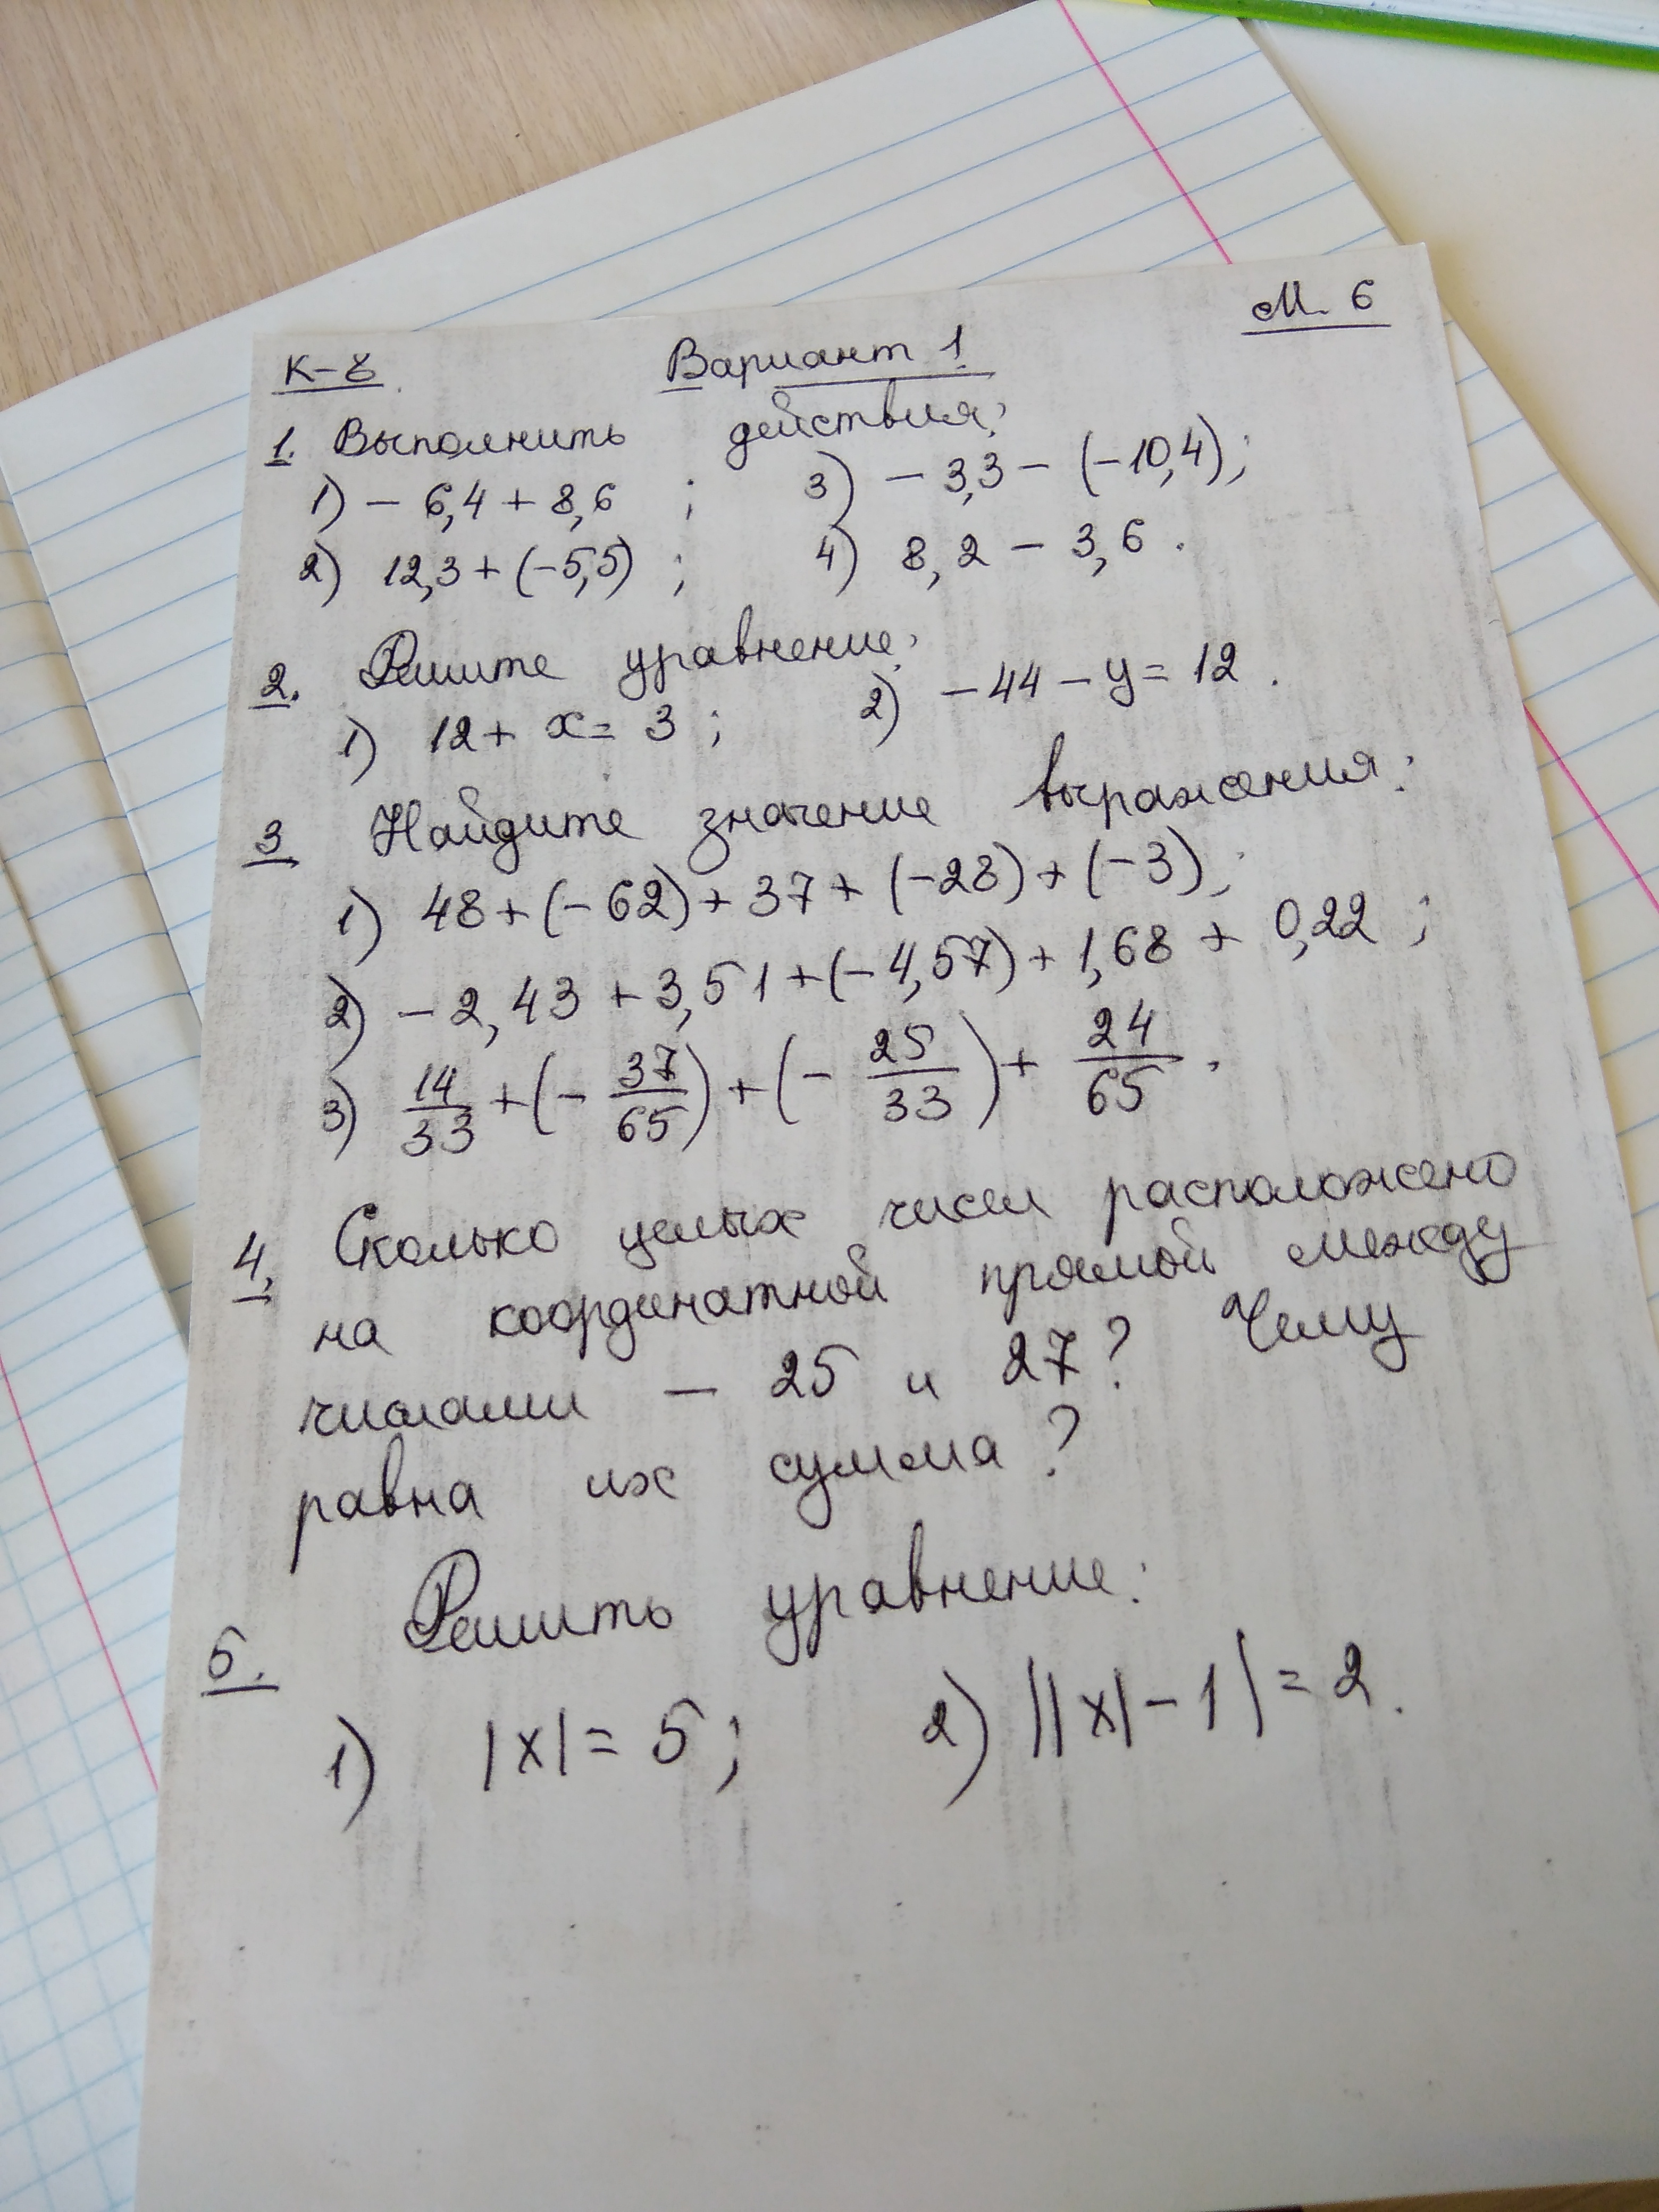 К-8 Вариант 1 М. 6
1. Выполнить действия:
1) - 6,4 + 8,6 ; 3) - 3,3 - (-10,4);
2) 12,3 + (-5,5) ; 4) 8,2 - 3,6 .
2. Решите уравнение:
1) 12 + x = 3 ; 2) - 44 - y = 12 .
3 Найдите значение выражения:
1) 48 + (-62) + 37 + (-28) + (-3);
2) - 2,43 + 3,51 + (-4,57) + 1,68 + 0,22 ;
3) 14/33 + (- 37/65) + (- 25/33) + 24/65 .
4. Сколько целых чисел расположено
на координатной прямой между
числами - 25 и 27? Чему
равна их сумма?
5. Решить уравнение:
1) |x| = 5 ; 2) ||x| - 1| = 2 .